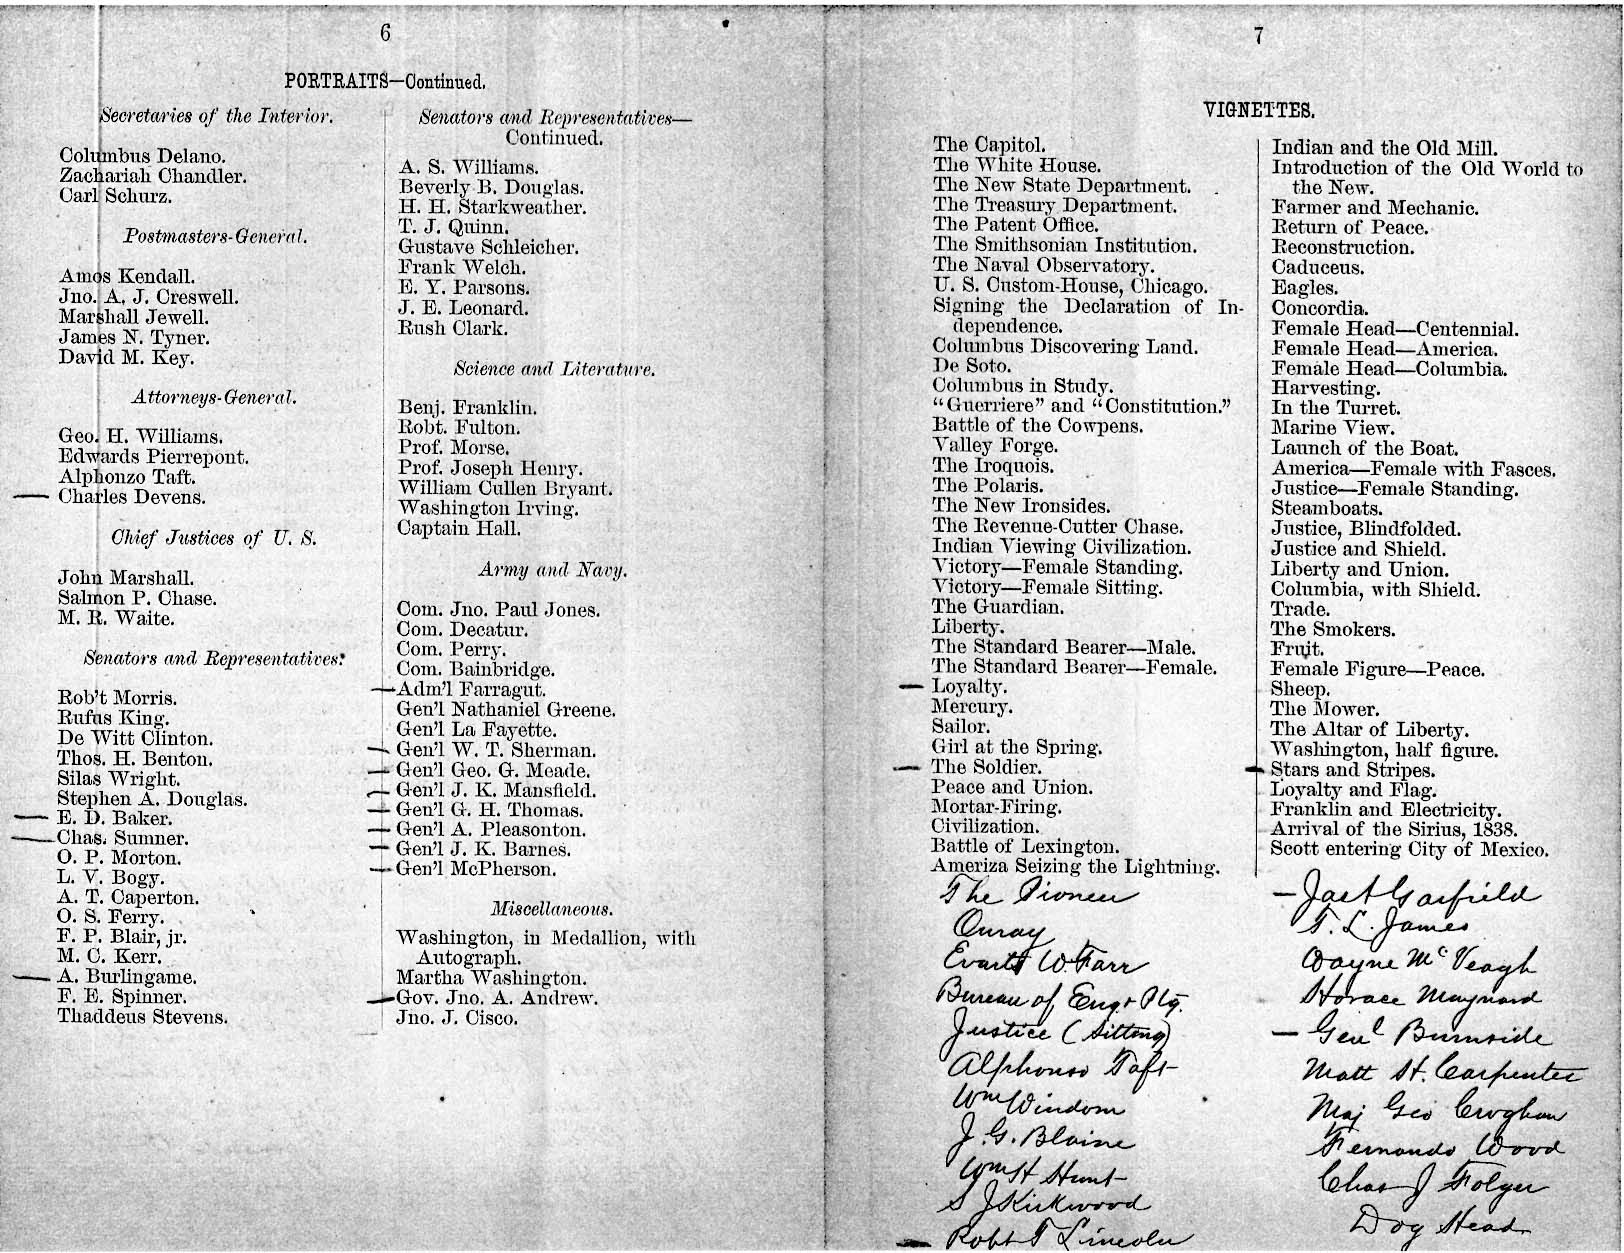 6
PORTRAITS—Continued.
Secretaries of the Interior.
Columbus Delano.
Zachariah Chandler.
Carl Schurz.
Postmasters-General.
Amos Kendall.
Jno. A. J. Creswell.
Marshall Jewell.
James N. Tyner.
David M. Key.
Attorneys-General.
Geo. H. Williams.
Edwards Pierrepont.
Alphonzo Taft.
— Charles Devens.
Chief Justices of U. S.
John Marshall.
Salmon P. Chase.
M. R. Waite.
Senators and Representatives.
Rob't Morris.
Rufus King.
De Witt Clinton.
Thos. H. Benton.
Silas Wright.
Stephen A. Douglas.
— E. D. Baker.
— Chas. Sumner.
O. P. Morton.
L. V. Bogy.
A. T. Caperton.
O. S. Ferry.
F. P. Blair, jr.
M. C. Kerr.
— A. Burlingame.
F. E. Spinner.
Thaddeus Stevens.
Senators and Representatives—
Continued.
A. S. Williams.
Beverly B. Douglas.
H. H. Starkweather.
T. J. Quinn.
Gustave Schleicher.
Frank Welch.
E. Y. Parsons.
J. E. Leonard.
Rush Clark.
Science and Literature.
Benj. Franklin.
Robt. Fulton.
Prof. Morse.
Prof. Joseph Henry.
William Cullen Bryant.
Washington Irving.
Captain Hall.
Army and Navy.
Com. Jno. Paul Jones.
Com. Decatur.
Com. Perry.
Com. Bainbridge.
— Adm'l Farragut.
Gen'l Nathaniel Greene.
Gen'l La Fayette.
— Gen'l W. T. Sherman.
— Gen'l Geo. G. Meade.
— Gen'l J. K. Mansfield.
— Gen'l G. H. Thomas.
— Gen'l A. Pleasonton.
— Gen'l J. K. Barnes.
— Gen'l McPherson.
Miscellaneous.
Washington, in Medallion, with
Autograph.
Martha Washington.
— Gov. Jno. A. Andrew.
Jno. J. Cisco.
7
VIGNETTES.
The Capitol.
The White House.
The New State Department.
The Treasury Department.
The Patent Office.
The Smithsonian Institution.
The Naval Observatory.
U. S. Custom-House, Chicago.
Signing the Declaration of In-
dependence.
Columbus Discovering Land.
De Soto.
Columbus in Study.
“Guerriere” and “Constitution.”
Battle of the Cowpens.
Valley Forge.
The Iroquois.
The Polaris.
The New Ironsides.
The Revenue-Cutter Chase.
Indian Viewing Civilization.
Victory—Female Standing.
Victory—Female Sitting.
The Guardian.
Liberty.
The Standard Bearer—Male.
The Standard Bearer—Female.
— Loyalty.
Mercury.
Sailor.
Girl at the Spring.
— The Soldier.
Peace and Union.
Mortar-Firing.
Civilization.
Battle of Lexington.
Ameriza Seizing the Lightning.
The Pioneer
Ouray
Evarts W Farr
Bureau of Eng & Ptg.
Justice (Sitting)
Alphonso Taft
Wm Windom
J. G. Blaine
Wm H Hunt
S J Kirkwood
— Robt T Lincoln
Indian and the Old Mill.
Introduction of the Old World to
the New.
Farmer and Mechanic.
Return of Peace.
Reconstruction.
Caduceus.
Eagles.
Concordia.
Female Head—Centennial.
Female Head—America.
Female Head—Columbia.
Harvesting.
In the Turret.
Marine View.
Launch of the Boat.
America—Female with Fasces.
Justice—Female Standing.
Steamboats.
Justice, Blindfolded.
Justice and Shield.
Liberty and Union.
Columbia, with Shield.
Trade.
The Smokers.
Fruit.
Female Figure—Peace.
Sheep.
The Mower.
The Altar of Liberty.
Washington, half figure.
— Stars and Stripes.
Loyalty and Flag.
Franklin and Electricity.
Arrival of the Sirius, 1838.
Scott entering City of Mexico.
— Jas A Garfield
T. L. James
Wayne McVeagh
Horace Maynard
— Genl Burnside
Matt H. Carpenter
Maj Geo Croghan
Fernando Wood
Chas J Folger
Dog Head